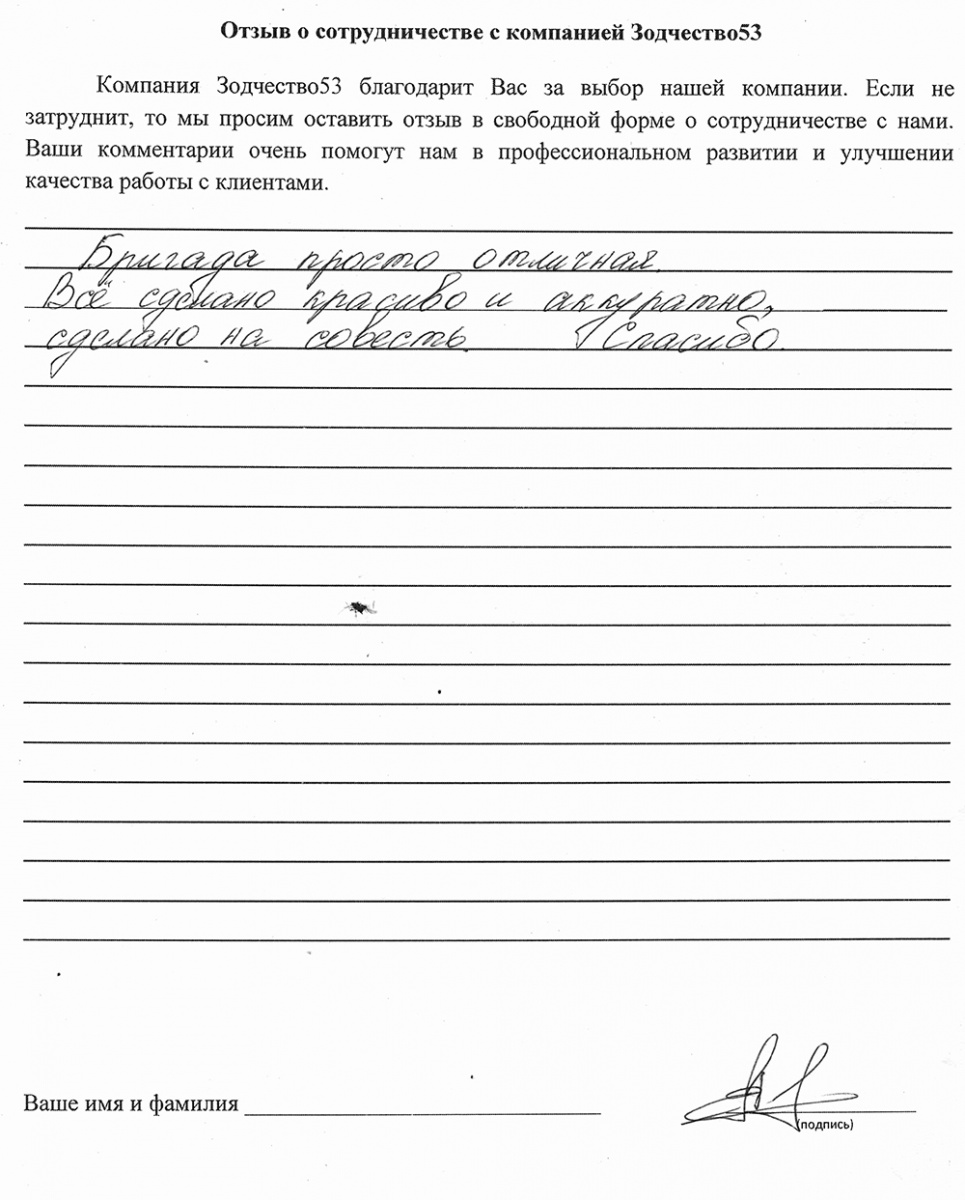 Отзыв о сотрудничестве с компанией Зодчество53
Компания Зодчество53 благодарит Вас за выбор нашей компании. Если не
затруднит, то мы просим оставить отзыв в свободной форме о сотрудничестве с нами.
Ваши комментарии очень помогут нам в профессиональном развитии и улучшении
качества работы с клиентами.
Бригада просто отличная.
Всё сделано красиво и аккуратно,
сделано на совесть. Спасибо.
Ваше имя и фамилия
(подпись)